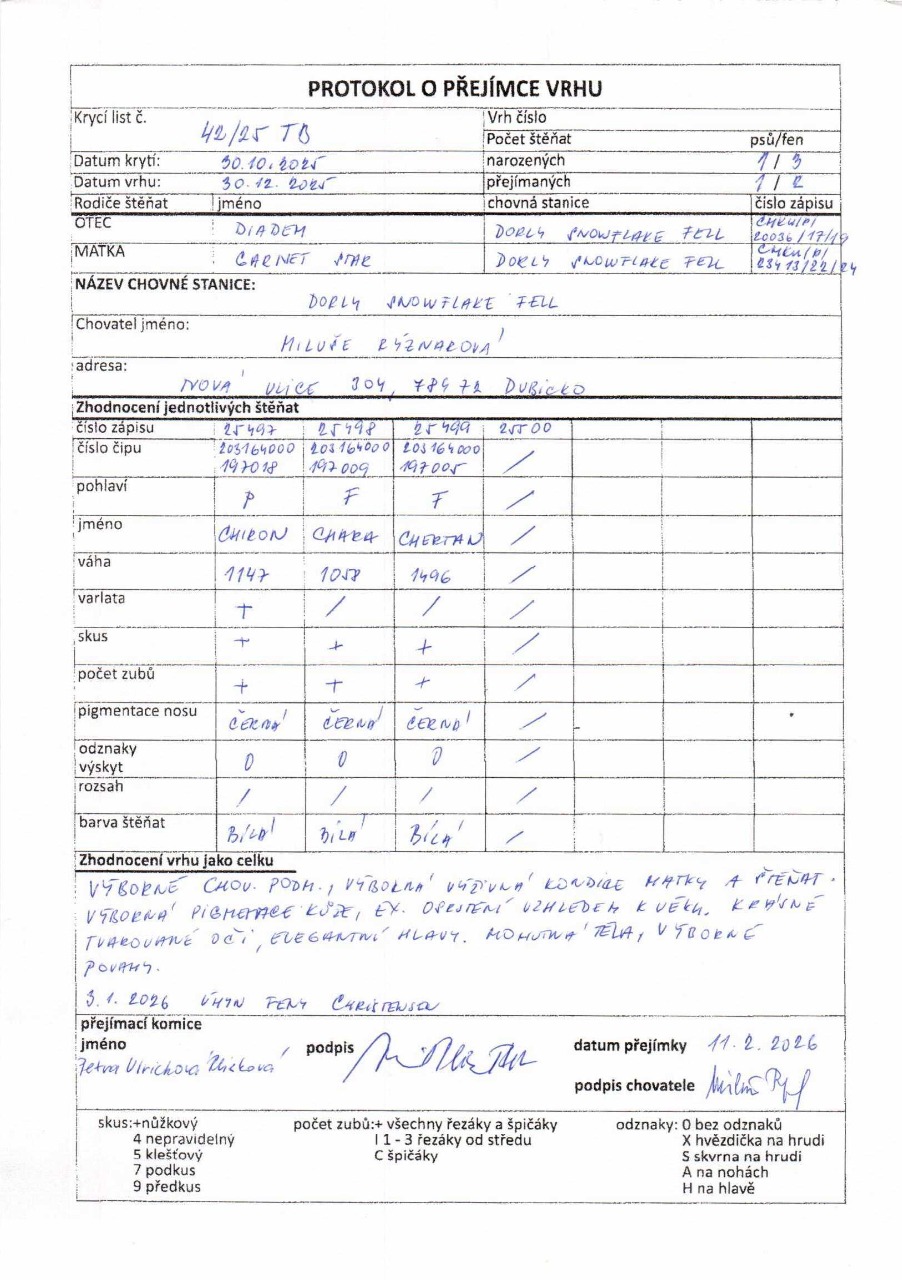 PROTOKOL O PŘEJÍMCE VRHU
Krycí list č. 42/25 TB
Vrh číslo
Počet štěňat psů/fen
Datum krytí: 30.10.2025 narozených 1 / 3
Datum vrhu: 30.12.2025 přejímaných 1 / 2
Rodiče štěňat jméno chovná stanice číslo zápisu
OTEC DIADEM DORLY SNOWFLAKE FELL CMKU/P/ 20036/17/19
MATKA GARNET STAR DORLY SNOWFLAKE FELL CMKU/P/ 23413/22/24
NÁZEV CHOVNÉ STANICE:
DORLY SNOWFLAKE FELL
Chovatel jméno:
MILUŠE RÝZNAROVÁ
adresa:
NOVÁ ULICE 304, 789 72 DUBICKO
Zhodnocení jednotlivých štěňat
číslo zápisu 25497 25498 25499 25500
číslo čipu 203164000 203164000 203164000 /
197018 197009 197005
pohlaví P F F /
jméno CHIRON CHARA CHERTAN /
váha 1147 1058 1496 /
varlata + / / /
skus + + + /
počet zubů + + + /
pigmentace nosu ČERNÁ ČERNÁ ČERNÁ /
odznaky
výskyt 0 0 0 /
rozsah / / / /
barva štěňat BÍLÁ BÍLÁ BÍLÁ /
Zhodnocení vrhu jako celku
VÝBORNÉ CHOV. PODM., VÝBORNÁ VÝŽIVNÁ KONDICE MATKY A ŠTĚŇAT.
VÝBORNÁ PIGMENTACE KŮŽE, EX. OSRSTĚNÍ VZHLEDEM K VĚKU. KRÁSNĚ
TVAROVANÉ OČI, ELEGANTNÍ HLAVY. MOHUTNÁ TĚLA, VÝBORNÉ
POVAHY.
3.1.2026 ÚHYN FENY CHRISTENSEN
přejímací komice
jméno podpis datum přejímky 11.2.2026
Petra Ulrichová
podpis chovatele
skus:+nůžkový počet zubů:+ všechny řezáky a špičáky odznaky: 0 bez odznaků
4 nepravidelný I 1 - 3 řezáky od středu X hvězdička na hrudi
5 klešťový C špičáky S skvrna na hrudi
7 podkus A na nohách
9 předkus H na hlavě